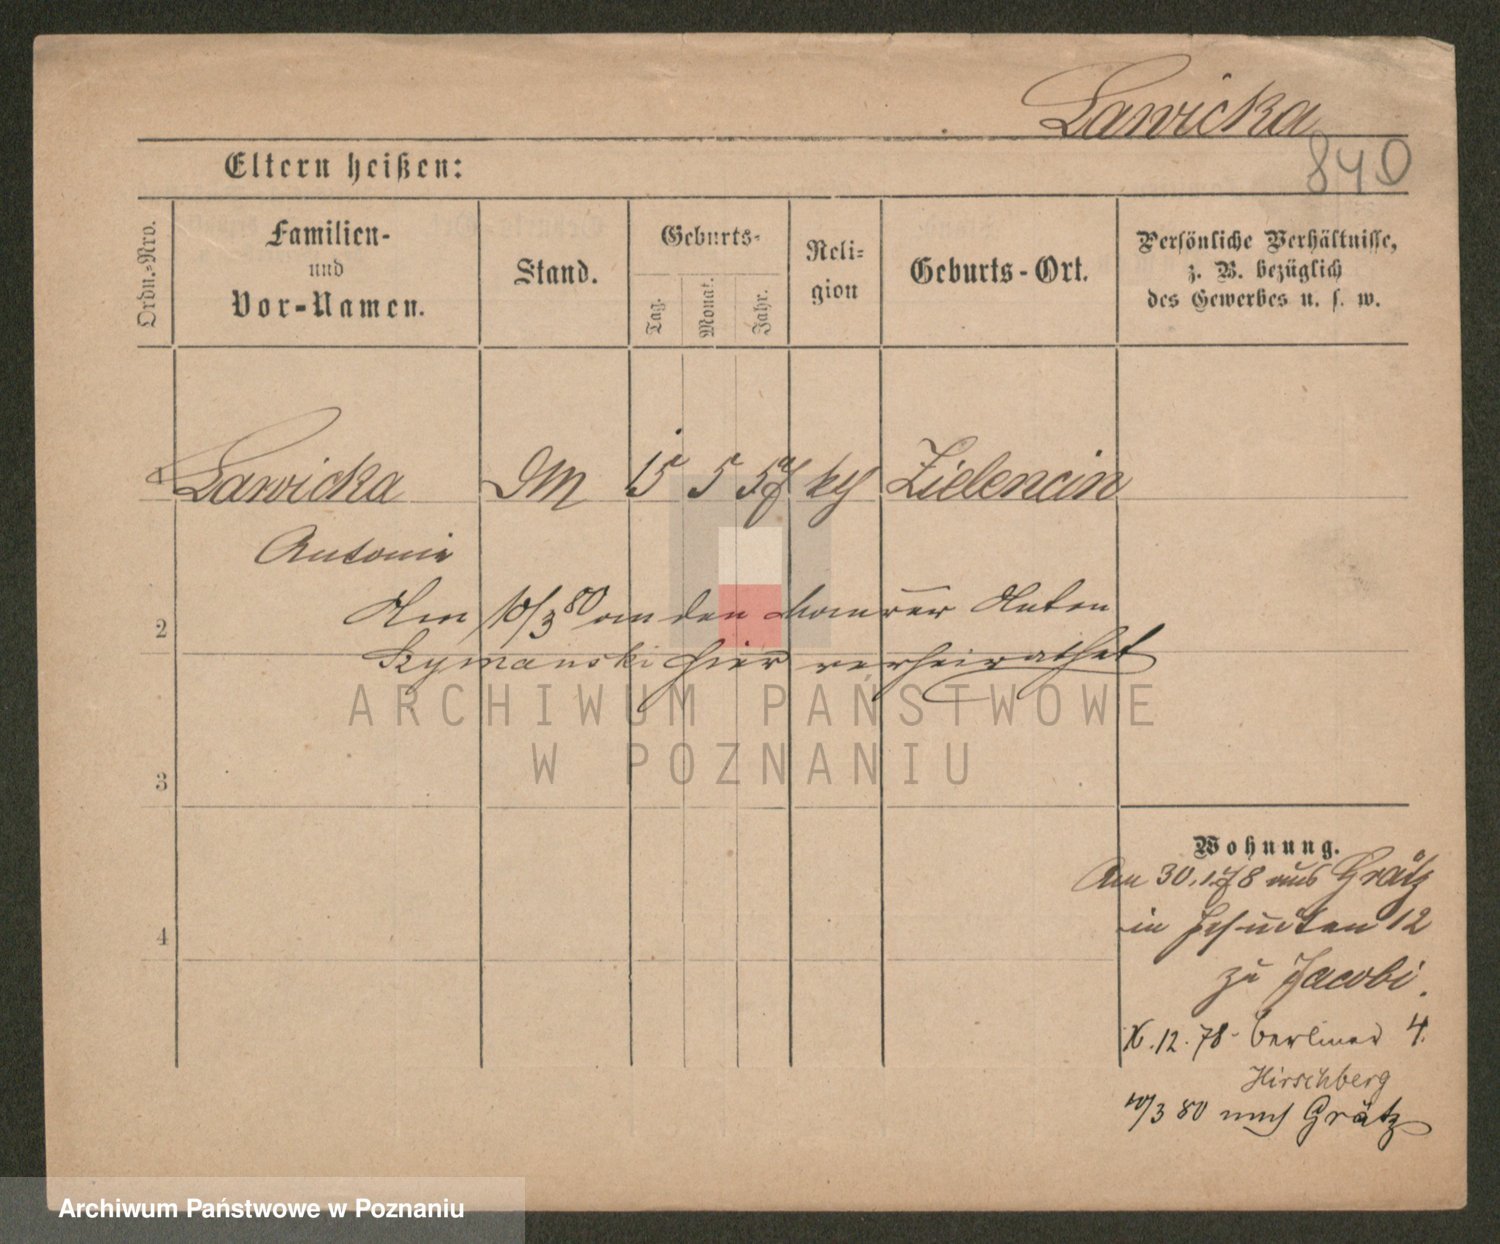 Lawicka
840
Eltern heißen:
Ordn.-Nro.
Familien-
und
Vor-Namen.
Stand.
Geburts-
Tag.
Monat.
Jahr.
Reli-
gion
Geburts-Ort.
Persönliche Verhältnisse,
z. B. bezüglich
des Gewerbes u. s. w.
1 Lawicka DM 15 5 57 kg Zielencin
Antonie
2 Am 10/3 80 an den Maurer Anton
Szymanski hier verheirathet
ARCHIWUM PAŃSTWOWE
W POZNANIU
3
4
Wohnung.
Am 30.1.78 aus Grätz
in Jesuiten 12
zu Jacobi.
12.78 Berliner 4.
Hirschberg
10/3 80 nach Grätz
Archiwum Państwowe w Poznaniu